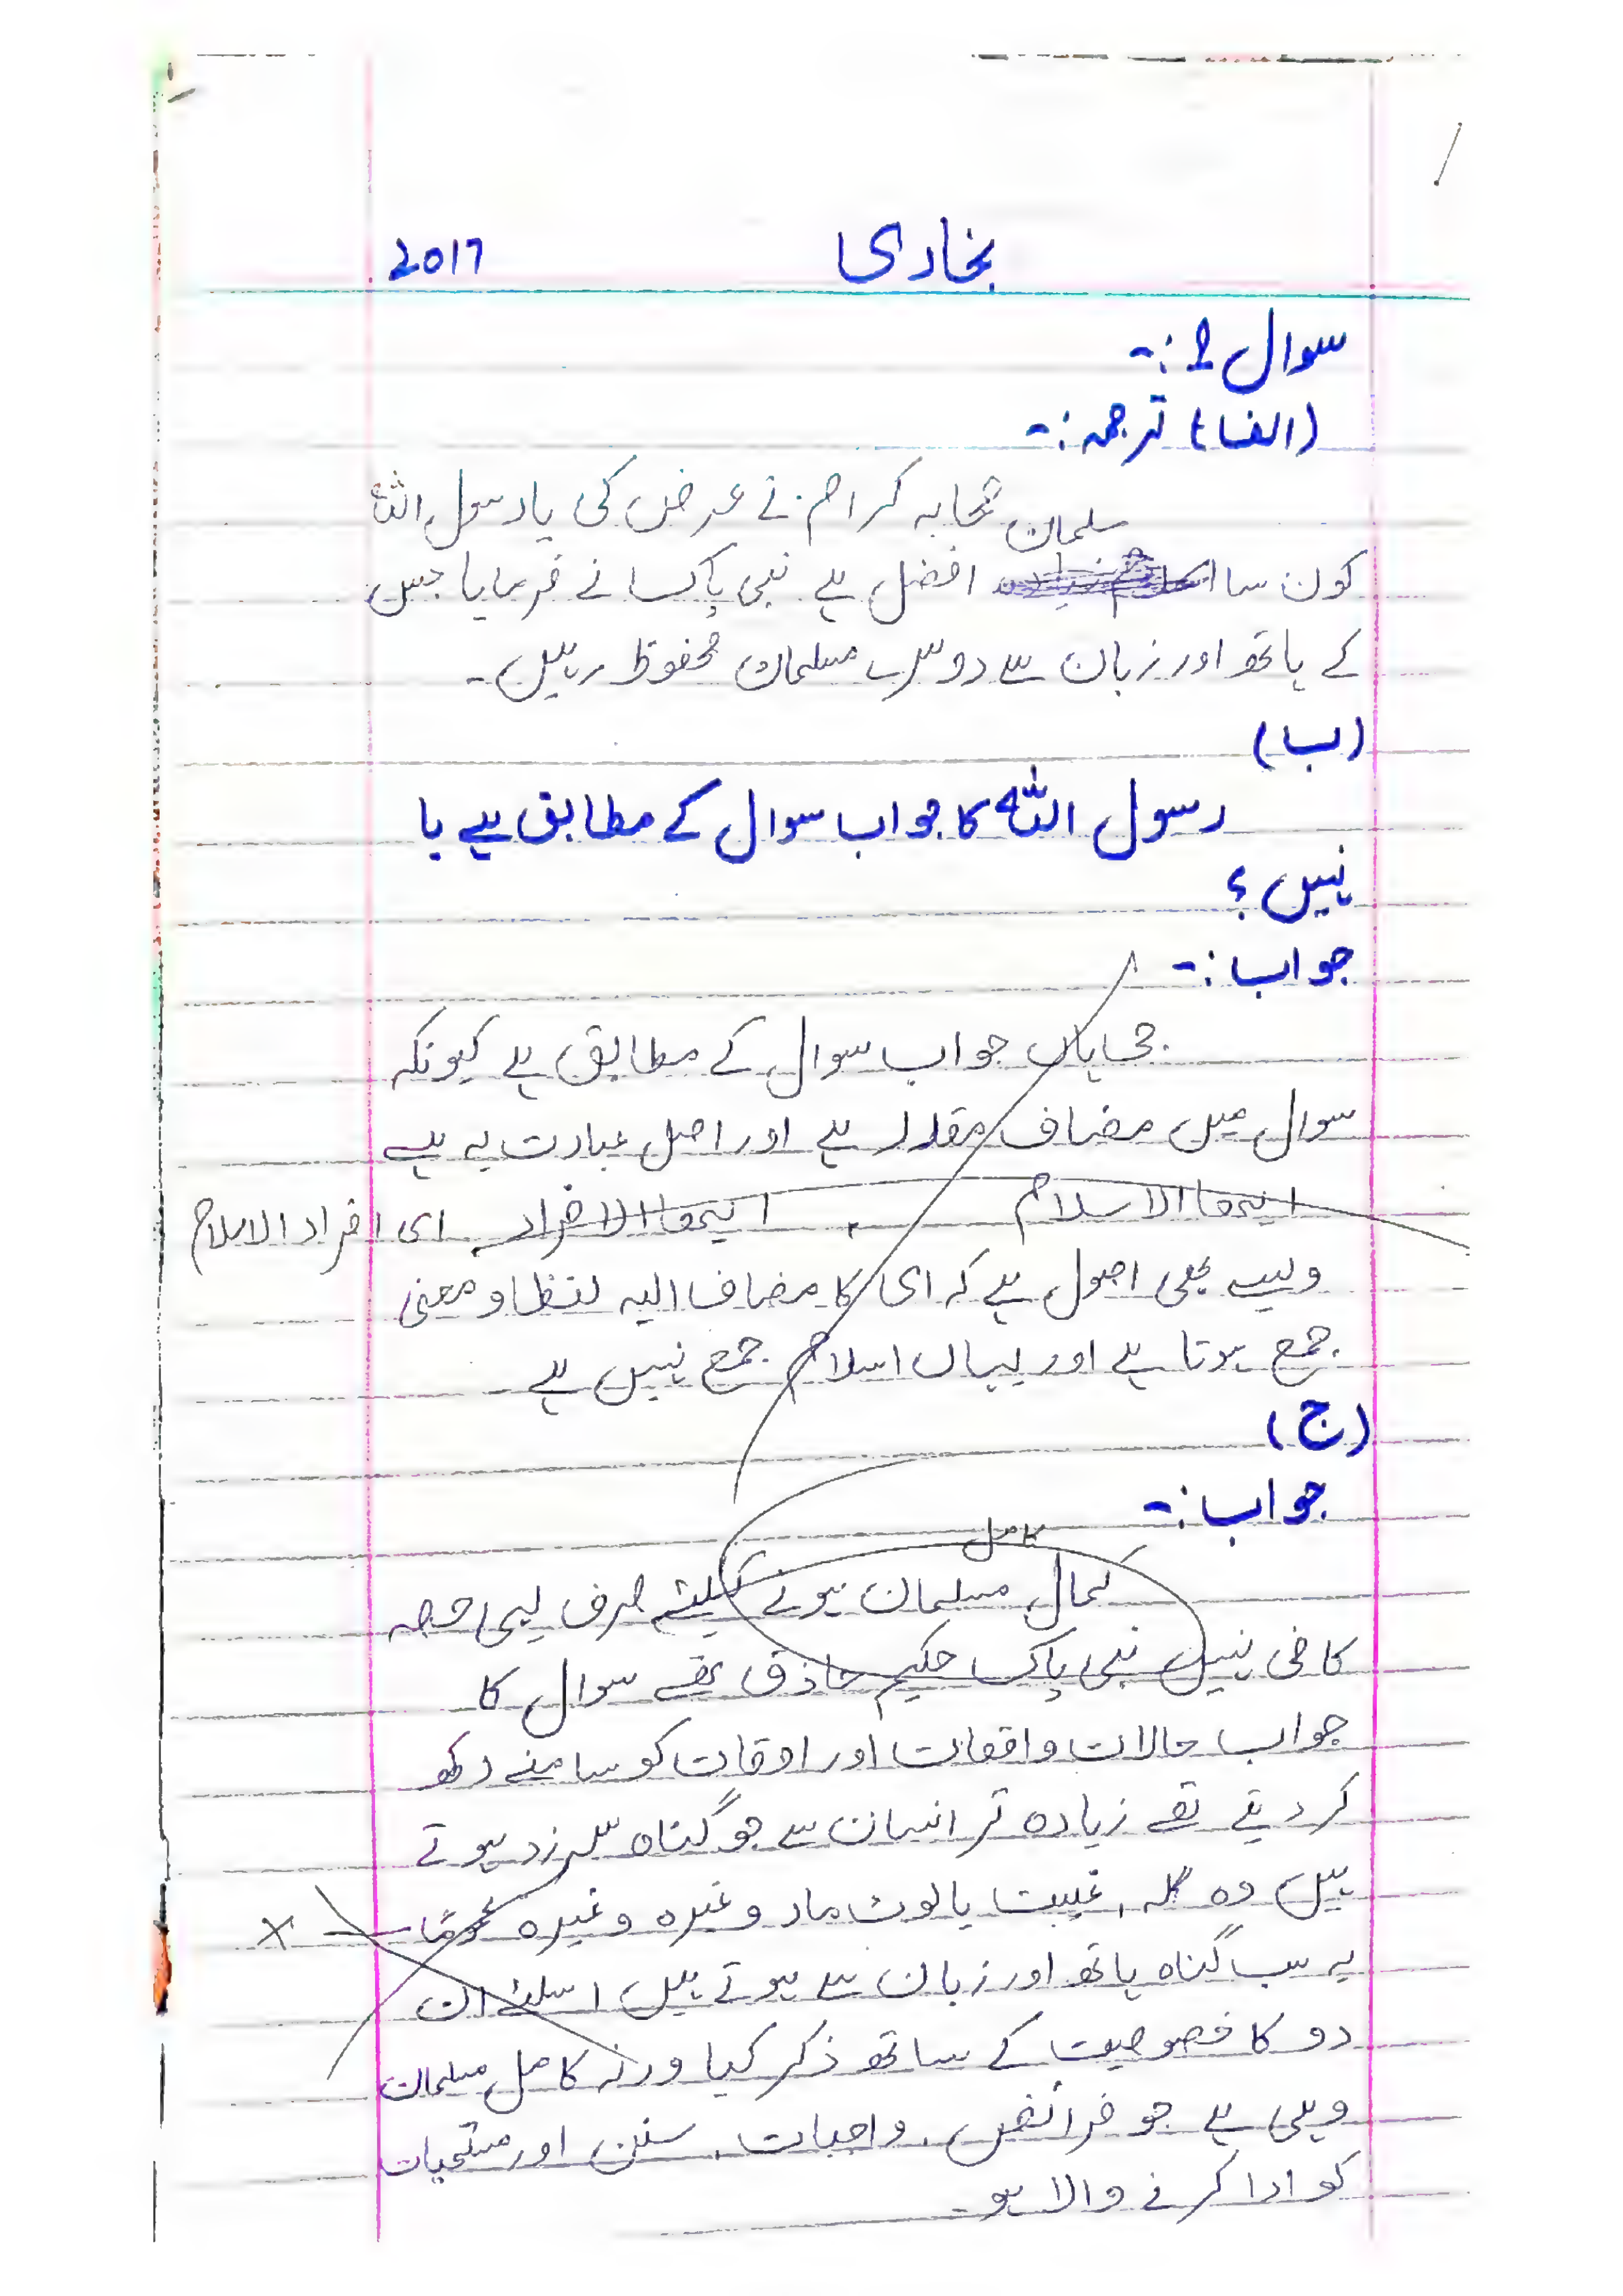 بخاری 2017
سوال 1:-
(الف) ترجمہ:-
صحابہ کرام نے عرض کی یا رسول اللہ
کون سا مسلمان افضل ہے نبی پاک نے فرمایا جس
کے ہاتھ اور زبان سے دوسرے مسلمان محفوظ رہیں۔
(ب)
رسول اللہ کا جواب سوال کے مطابق ہے یا
نہیں؟
جواب:-
جی ہاں جواب سوال کے مطابق ہے کیونکہ
سوال میں مضاف مقدر ہے اور اصل عبارت یہ ہے
ایھا الاسلام ، ایھا الافراد ای افراد الاسلام
ویسے بھی اصول ہے کہ ای کا مضاف الیہ لفظا و معنی
جمع ہوتا ہے اور یہاں اسلام جمع نہیں ہے۔
(ج)
جواب:-
کامل
کمال مسلمان ہونے کیلئے صرف یہی وجہ
کافی نہیں نبی پاک حکیم حاذق تھے سوال کا
جواب حالات واقعات اور اوقات کو سامنے رکھ
کر دیتے تھے زیادہ تر انسان سے جو گناہ سرزد ہوتے
ہیں وہ گلہ، غیبت یا لوٹ مار وغیرہ وغیرہ عموما
یہ سب گناہ ہاتھ اور زبان سے ہوتے ہیں اسلئے ان
دو کا خصوصیت کے ساتھ ذکر کیا ورنہ کامل مسلمان
وہی ہے جو فرائض، واجبات، سنن اور مستحبات
کو ادا کرنے والا ہو۔